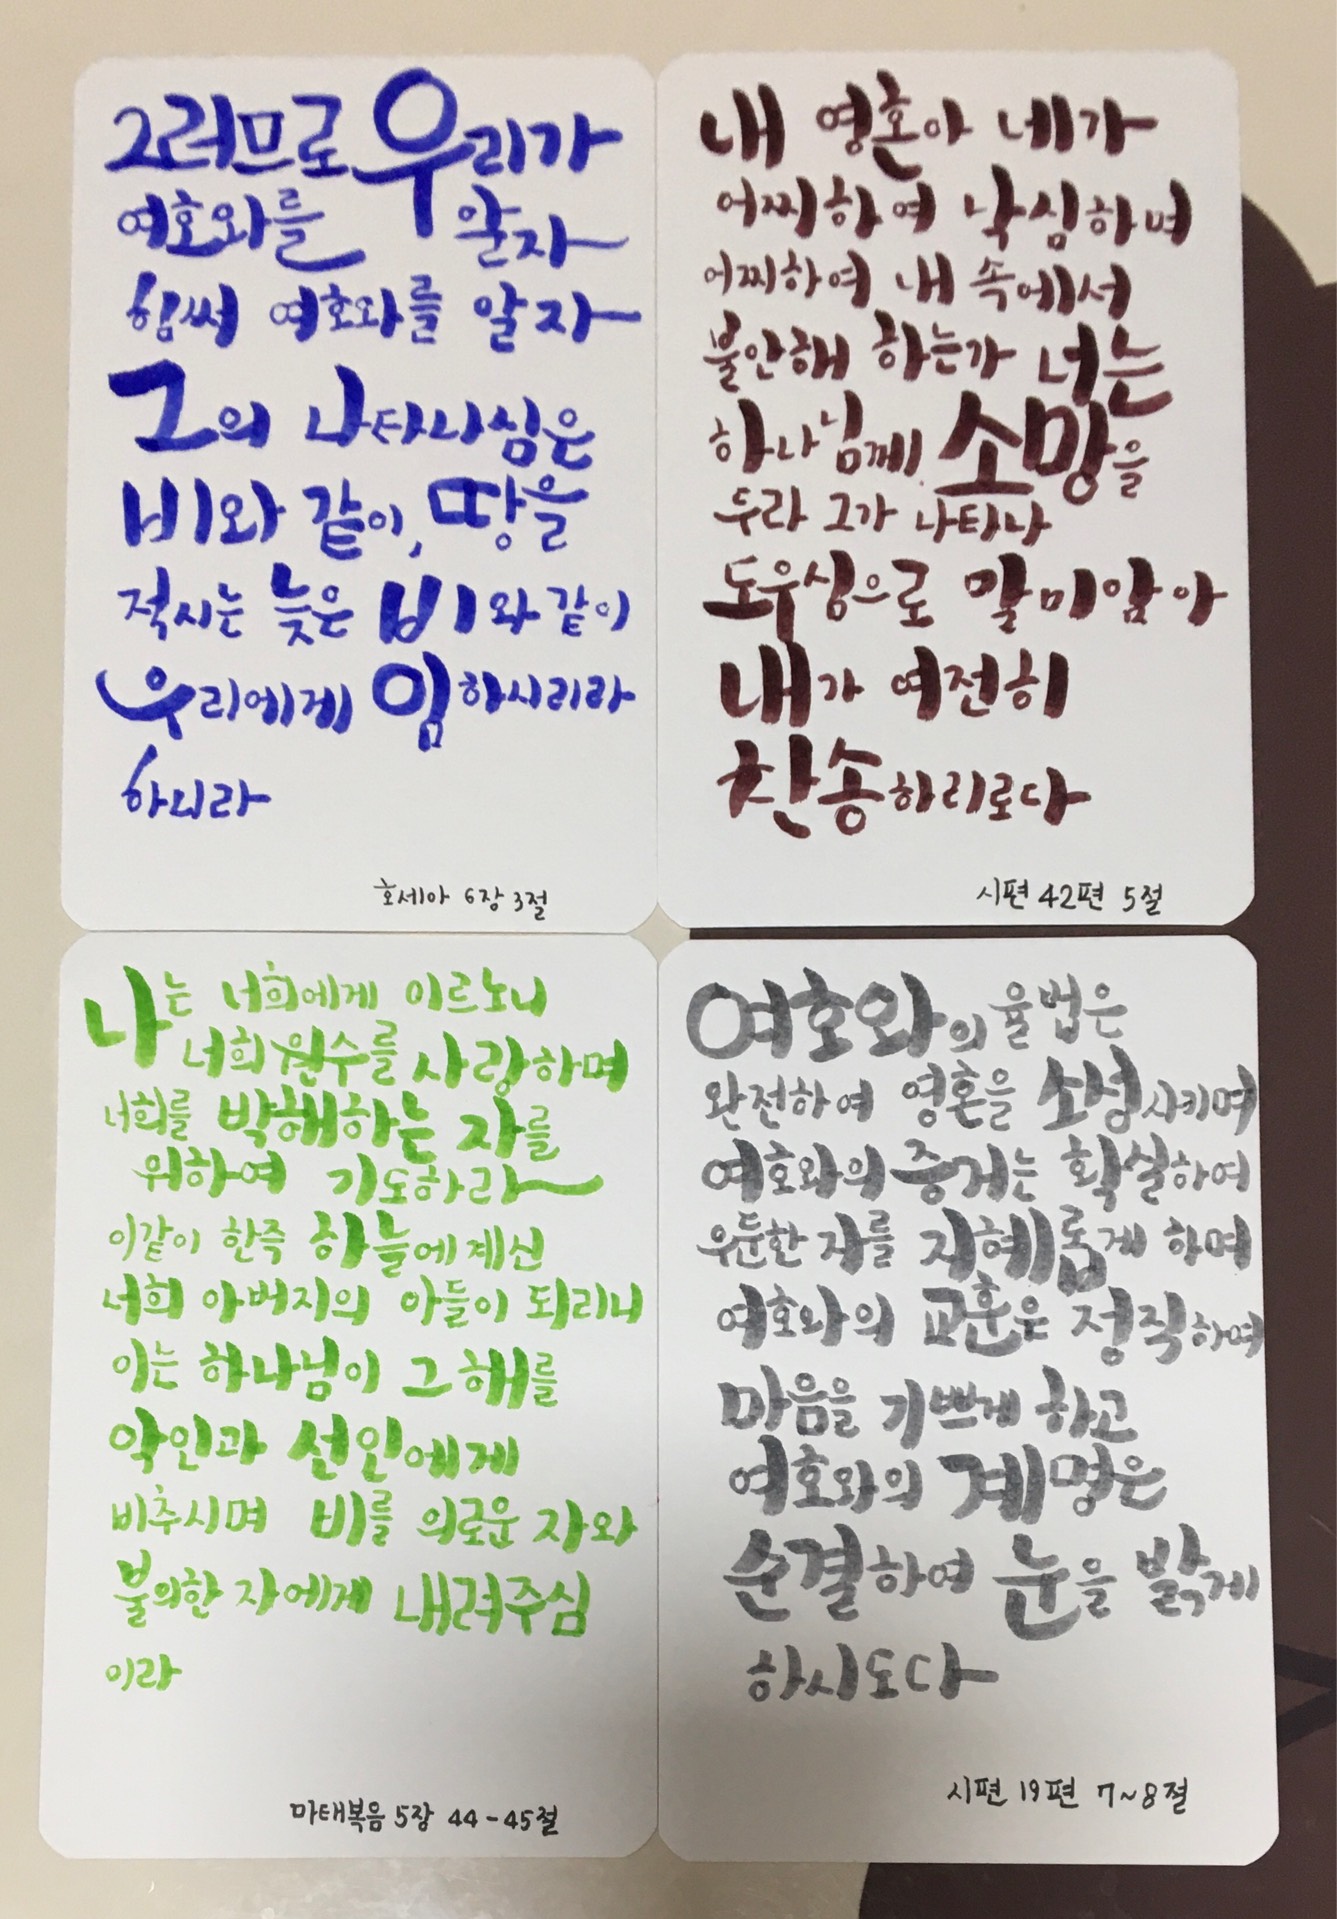 그러므로 우리가
여호와를 알자
힘써 여호와를 알자
그의 나타나심은
비와 같이, 땅을
적시는 늦은 비와 같이
우리에게 임하시리라
하니라
호세아 6장 3절
내 영혼아 네가
어찌하여 낙심하며
어찌하여 내 속에서
불안해 하는가 너는
하나님께 소망을
두라 그가 나타나
도우심으로 말미암아
내가 여전히
찬송하리로다
시편 42편 5절
나는 너희에게 이르노니
너희 원수를 사랑하며
너희를 박해하는 자를
위하여 기도하라
이같이 한즉 하늘에 계신
너희 아버지의 아들이 되리니
이는 하나님이 그 해를
악인과 선인에게
비추시며 비를 의로운 자와
불의한 자에게 내려주심
이라
마태복음 5장 44-45절
여호와의 율법은
완전하여 영혼을 소성시키며
여호와의 증거는 확실하여
우둔한 자를 지혜롭게 하며
여호와의 교훈은 정직하여
마음을 기쁘게 하고
여호와의 계명은
순결하여 눈을 밝게
하시도다
시편 19편 7~8절